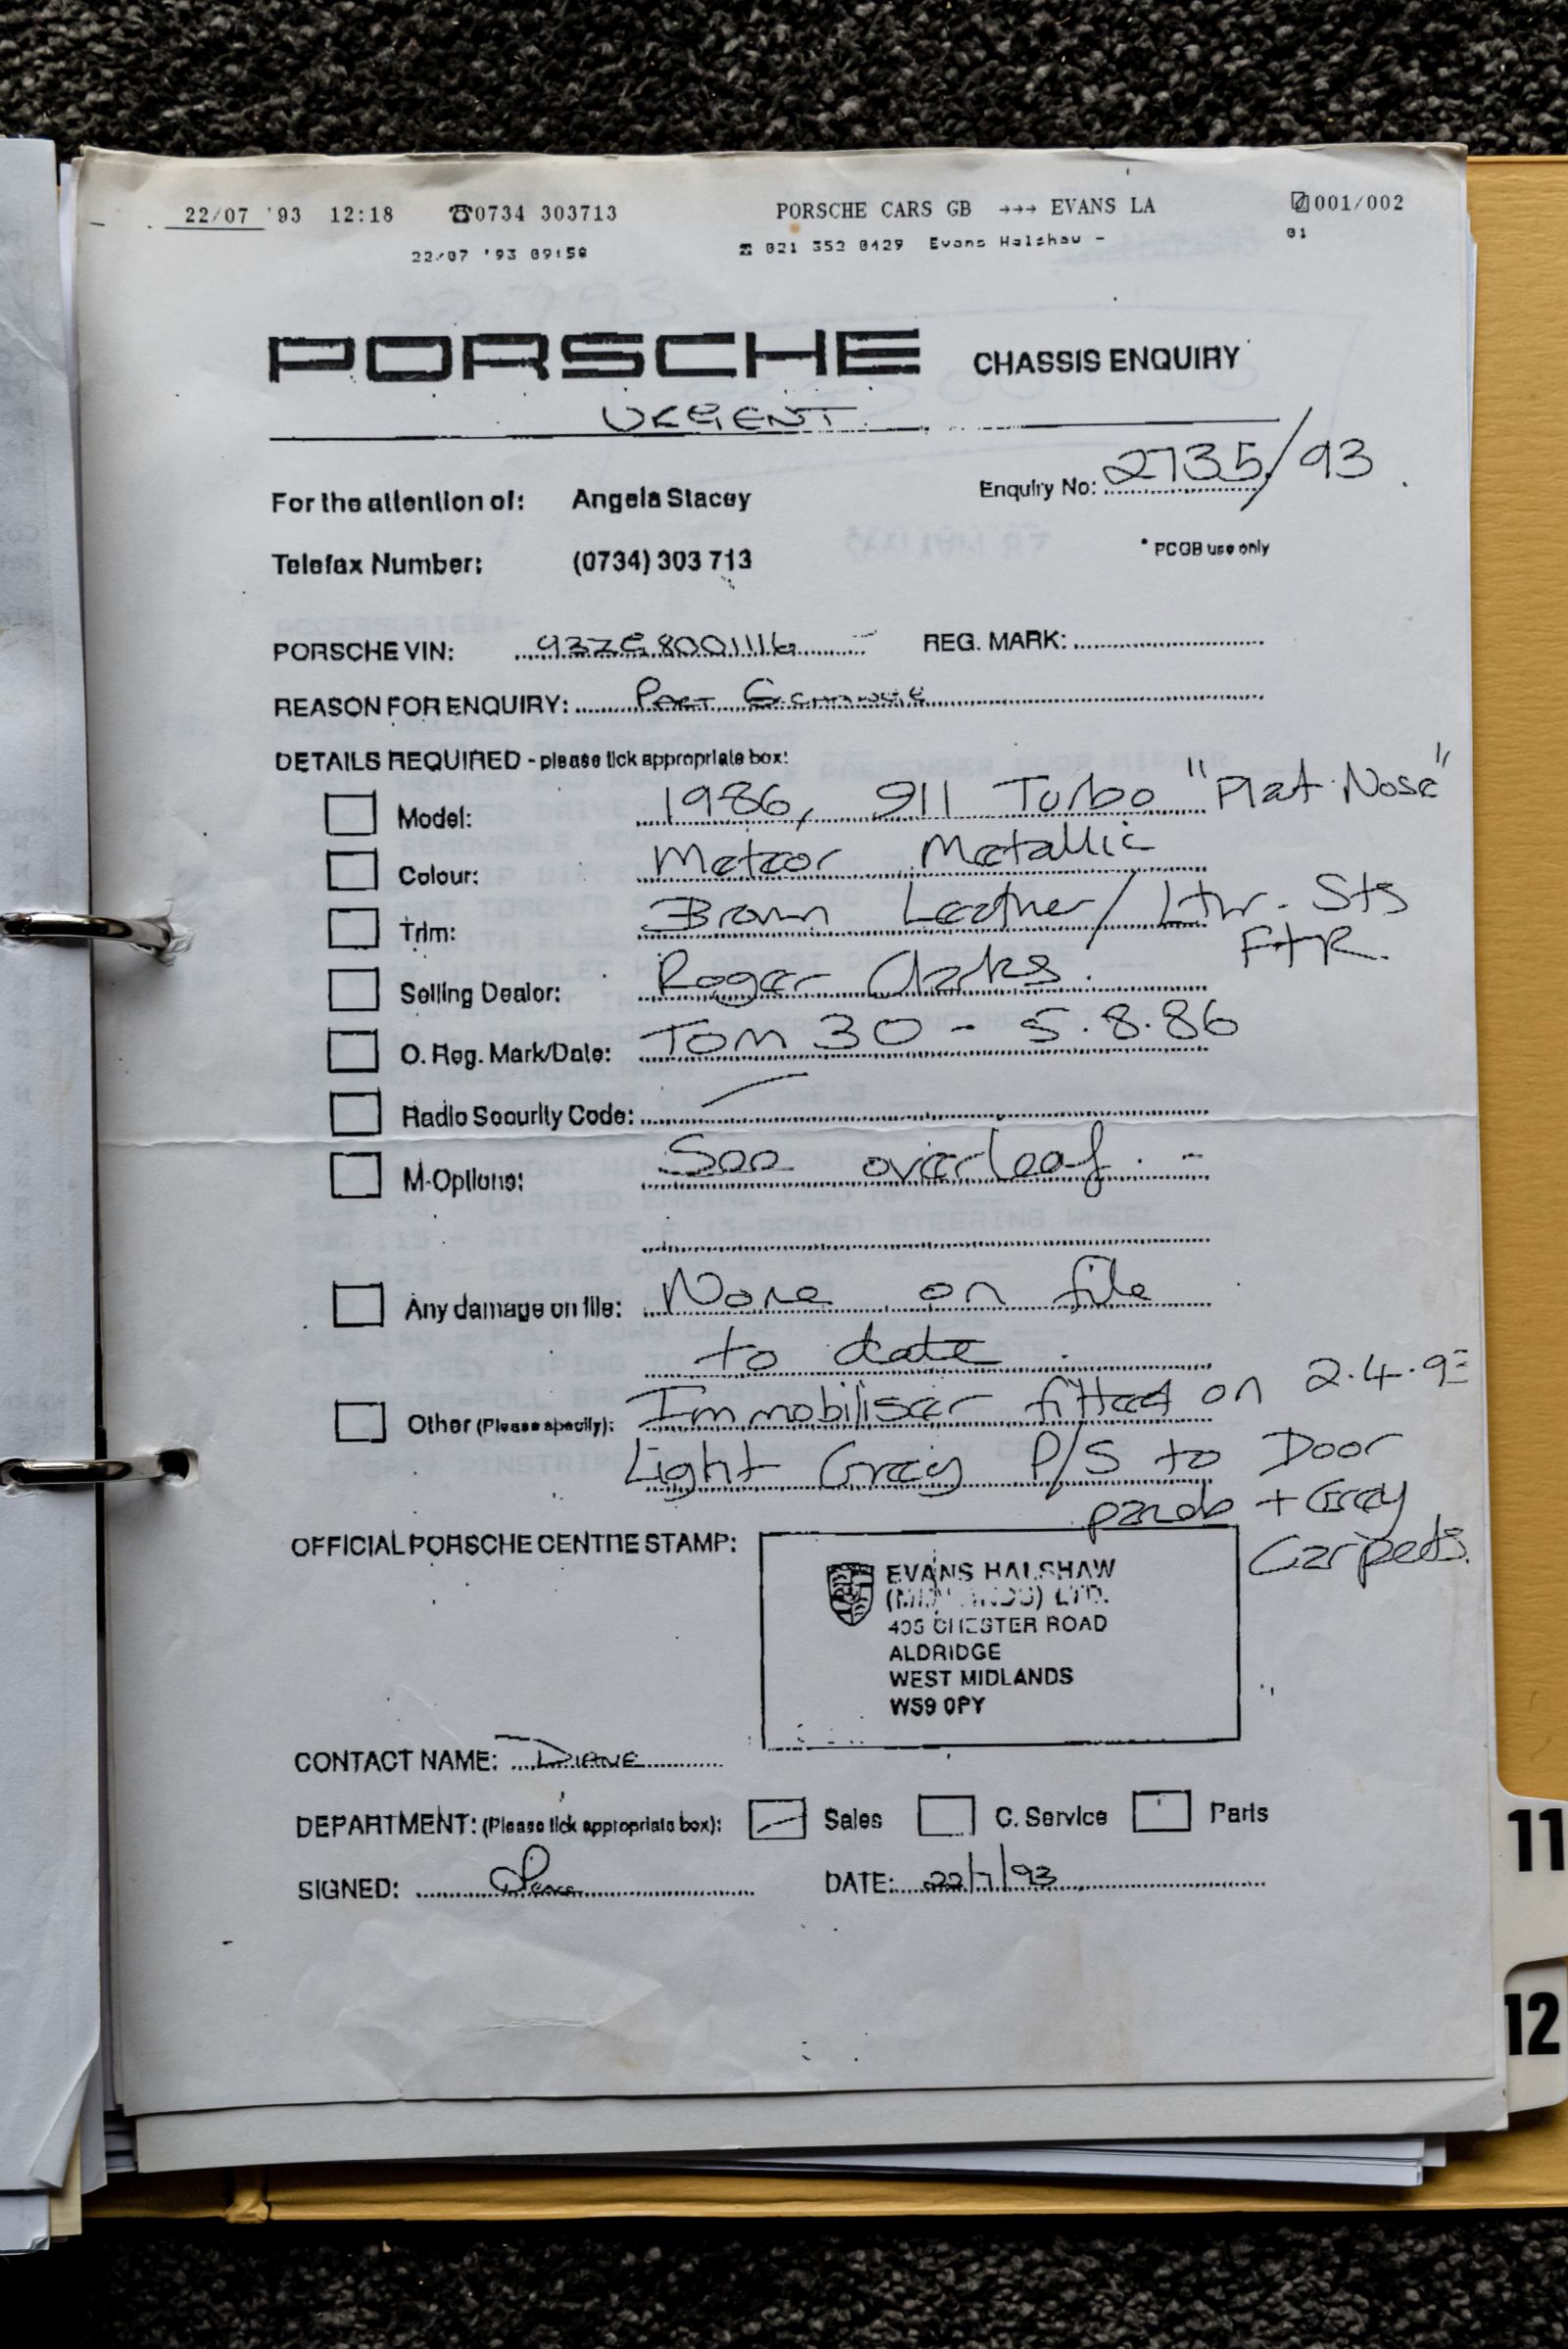 22/07 '93 12:18 ☎0734 303713 PORSCHE CARS GB →→→ EVANS LA 001/002
22/07 '93 09:58 ☎ 021 352 0429 Evans Halshaw - 01
PORSCHE CHASSIS ENQUIRY
URGENT
Enquiry No: 2735/93
For the attention of: Angela Stacey
* PCGB use only
Telefax Number: (0734) 303 713
PORSCHE VIN: 93ZG8001116 REG. MARK:
REASON FOR ENQUIRY: Part Exchange
DETAILS REQUIRED - please tick appropriate box:
Model: 1986, 911 Turbo "Flat Nose"
Colour: Meteor Metallic
Trim: Brown Leather/Lthr. Sts
F+R.
Selling Dealer: Roger Clarks.
O. Reg. Mark/Date: TOM 30 - 5.8.86
Radio Security Code:
M-Options: See overleaf. -
Any damage on file: None on file
to date.
Other (Please specify): Immobiliser fitted on 2.4.93
Light Grey P/S to Door
panels + Grey
Carpets.
OFFICIAL PORSCHE CENTRE STAMP:
EVANS HALSHAW
(MIDLANDS) LTD.
405 CHESTER ROAD
ALDRIDGE
WEST MIDLANDS
WS9 0PY
CONTACT NAME: DIANE
DEPARTMENT: (Please tick appropriate box): Sales C. Service Parts
SIGNED: Diane DATE: 22/7/93
11
12